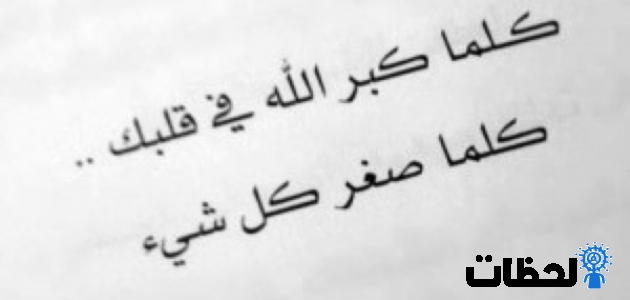 كلما كبر الله في قلبك ..
كلما صغر كل شيء
لحظات